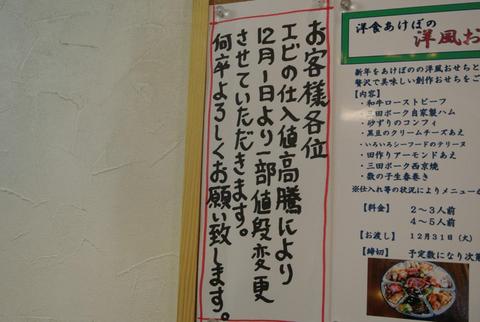 お客様各位
エビの仕入値高騰により
12月1日より一部値段変更
させていただきます。
何卒よろしくお願い致します。
洋食あけぼの
洋風お
新年をあけぼのの洋風おせちと
贅沢で美味しい創作おせちをご
【内容】
・和牛ローストビーフ
・三田ポーク自家製ハム
・砂ずりのコンフィ
・黒豆のクリームチーズあえ
・いろいろシーフードのテリーヌ
・田作りアーモンドあえ
・三田ポーク西京焼
・数の子生春巻き
※仕入れ等の状況によりメニュー
【料金】 2～3人前
4～5人前
【お渡し】 12月31日(火)
【締切】 予定数になり次第